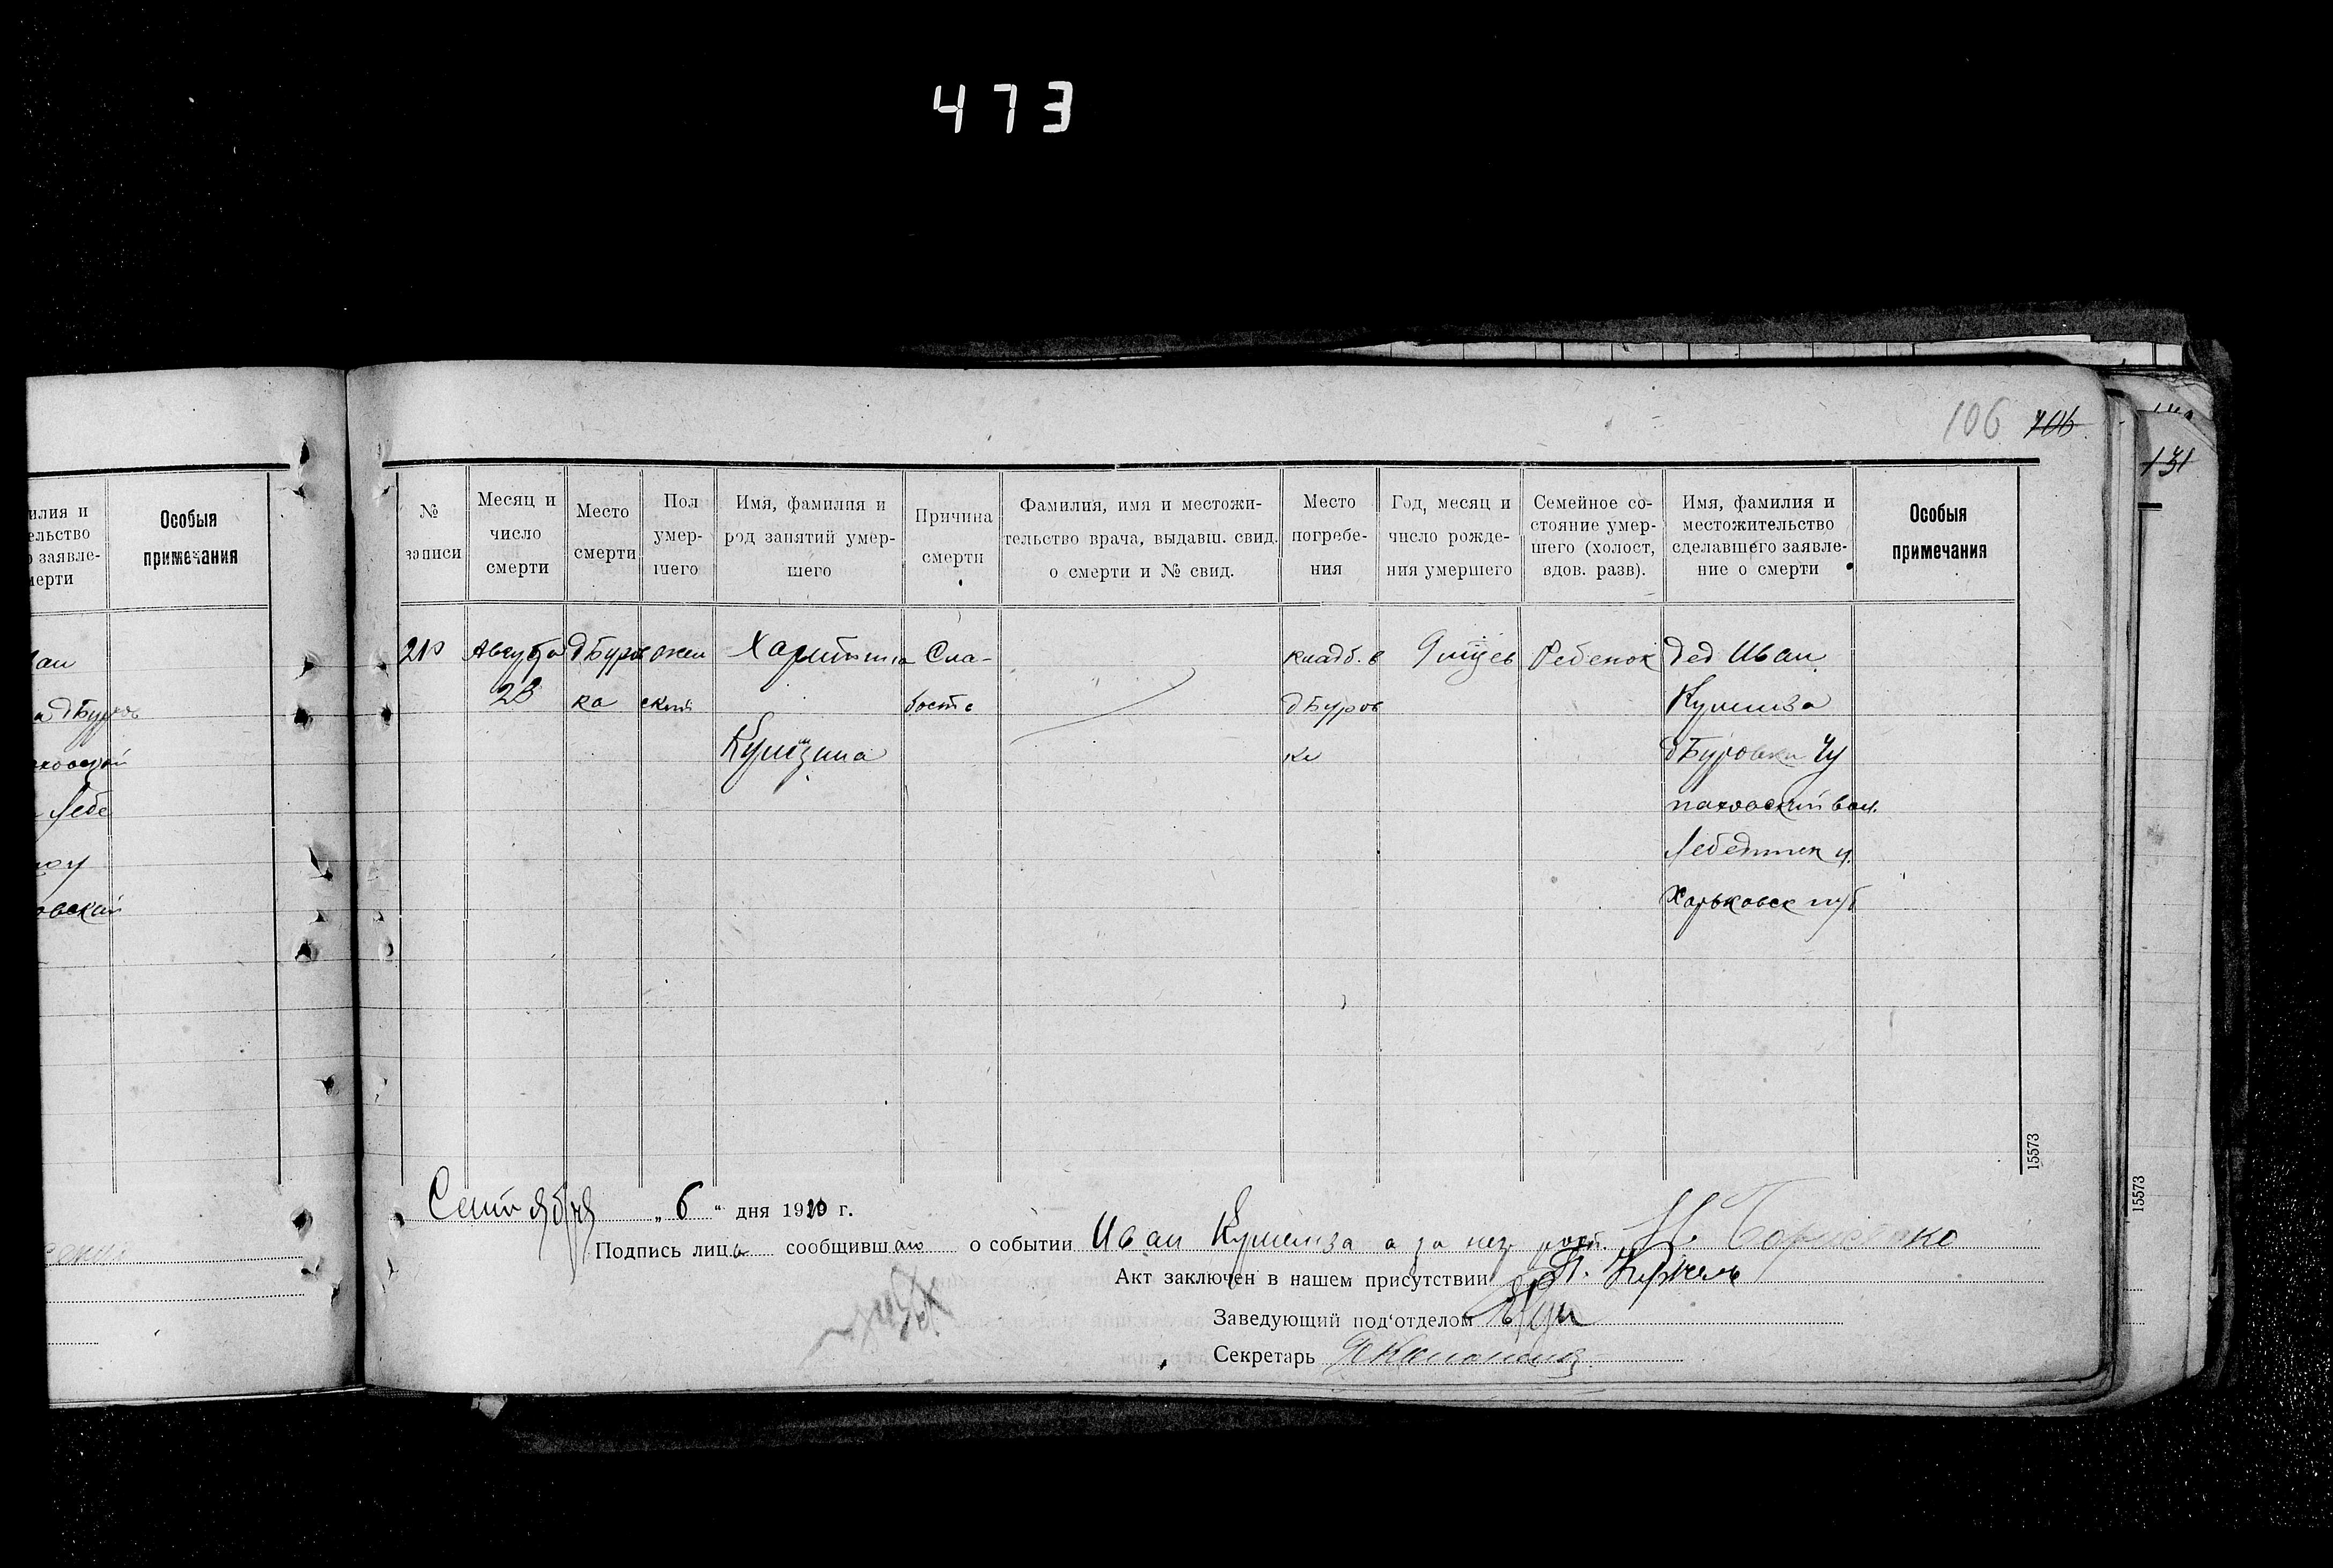 473
106 106
131
илия и
ельство
о заявле-
мерти
Особыя
примечания
а дБуров
Лебе
№
записи
Месяц и
число
смерти
Место
смерти
Пол
умер-
шего
Имя, фамилия и
род занятий умер-
шего
Причина
смерти
Фамилия, имя и местожи-
тельство врача, выдавш. свид.
о смерти и № свид.
Место
погребе-
ния
Год, месяц и
число рожде-
ния умершего
Семейное со-
стояние умер-
шего (холост,
вдов. разв).
Имя, фамилия и
местожительство
сделавшего заявле-
ние о смерти
Особыя
примечания
Августа
23
дБуров
ка
жен
ский
Харитина
Сла-
бость
кладб. в
дБуров
ке
9 мцев
Ребенок
дед Иван
дБуровки Чу
паховский вол.
Лебединск у.
Харьковск губ
15573
15573
Сентября „ 6 “ дня 1920 г.
Подпись лица сообщивш о событии Иван а за негр Борисенко
Акт заключен в нашем присутствии
Заведующий под'отделом
Секретарь